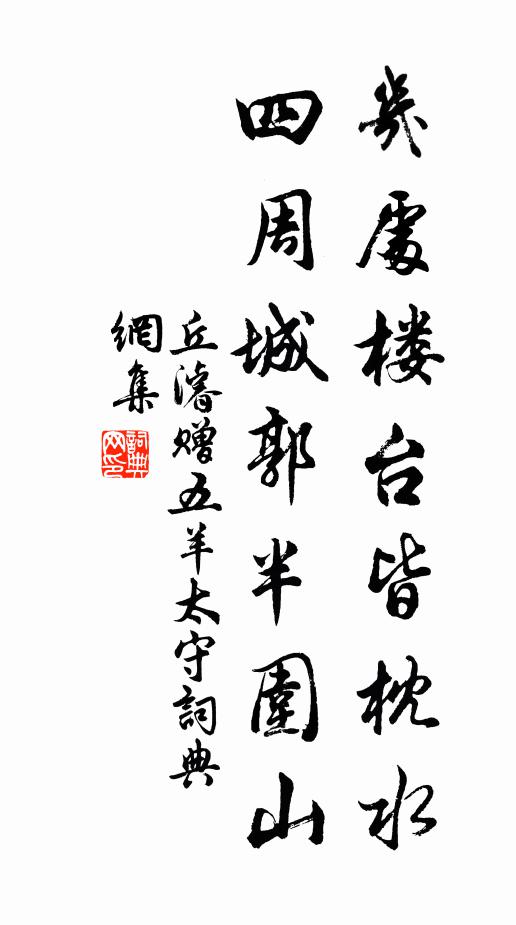 幾處楼台皆枕水
四周城郭半圍山
丘濬赠五羊太守詞典
網集
詞典網印